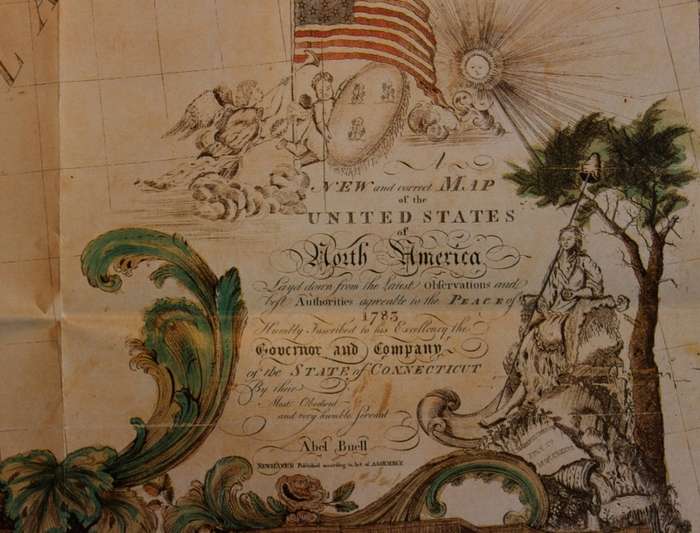 LA
A
NEW and correct MAP
of the
UNITED STATES
of
North America
Layd down from the Latest Observations and
best Authorities agreeable to the PEACE of
1783
Humbly Inscribed to his Excellency the
Governor and Company
of the STATE of CONNECTICUT
By their
Most Obedient
and very humble Servant
Abel Buell
NEWHAVEN Published according to Act of ASSEMBLY